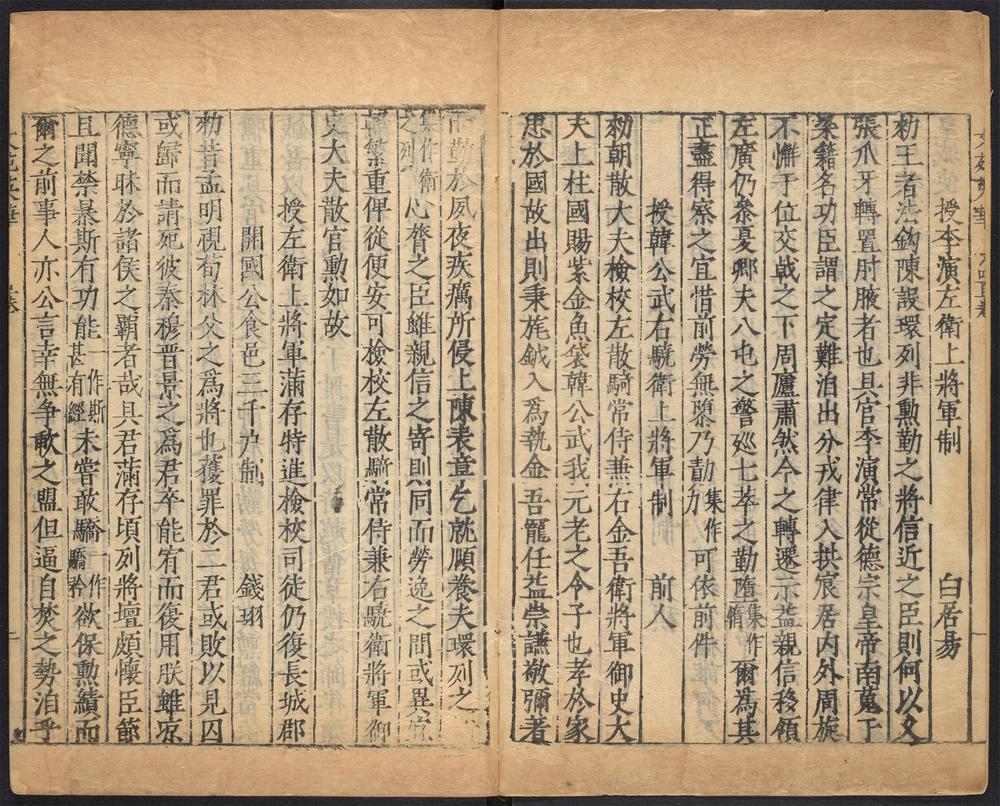 授李演左衛上將軍制 白居易
勑王者法鈎陳設環列非勲勤之將信近之臣則何以爻
張爪牙轉置肘腋者也具官李演常從德宗皇帝南蒐于
梁籍名功臣謂之定難洎出分戎律入拱宸居内外周旋
不懈于位交戟之下周廬肅然今之轉遷示益親信移領
左廣仍叅憂卿夫八屯之警廵七萃之勤墮集作惰爾爲其
正盡得察之宜惜前勞無隳乃勣集作力可依前件
授韓公武右驍衛上將軍制 前人
勑朝散大夫檢校左散騎常侍兼右金吾衛將軍御史大
夫上柱國賜紫金魚袋韓公武我元老之令子也孝於家
忠於國故出則秉旄鉞入爲執金吾寵任益崇謙敬彌著
而勤於夙夜疾癘所侵上陳表章乞就願養夫環列之
集作衛之列心膂之臣雖親信之寄則同而勞逸之間或異宜
繁重俾從便安可檢校左散騎常侍兼右驍衛將軍御
史大夫散官勲如故
授左衛上將軍滿存特進檢校司徒仍復長城郡
開國公食邑三千户制 錢珝
勑昔孟明視荀林父之爲將也獲罪於二君或敗以見囚
或歸而請死彼秦穆晉景之爲君卒能宥而復用朕雖凉
德寧昧於諸侯之霸者哉具君滿存頃列將壇頗懷臣節
且聞禁暴斯有功能一作斯甚有經未嘗敢驕一作驕矜欲保勲績而
爾之前事人亦公言幸無争歃之盟但逼自焚之勢洎乎